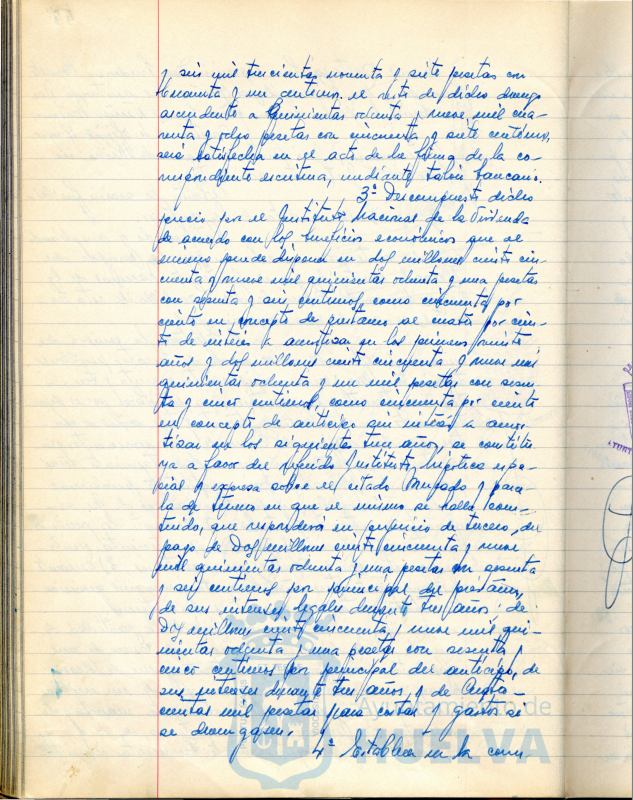 y seis mil trescientas noventa y siete pesetas con
sesenta y un centimos. el resto de dicho
ascendente a Quinientas ochenta y nueve mil cua-
renta y ocho pesetas con cincuenta y siete centimos,
será satisfecha en el acto de la firma de la co-
rrespondiente escritura, mediante talón bancario.
3º Descompuesto dicho
precio por el Instituto Nacional de la Vivienda
de acuerdo con los beneficios económicos que el
mismo puede dispensar en dos millones ciento cin-
cuenta y nueve mil quinientas ochenta y una pesetas
con sesenta y seis centimos, como cincuenta por
ciento en concepto de prestamo al cuatro por cien-
to de interés a amortizar en los primeros veinte
años y dos millones ciento cincuenta y nueve mil
quinientas ochenta y un mil pesetas con sesen-
ta y cinco centimos, como cincuenta por ciento
en concepto de anticipo sin interés a amor-
tizar en los siguientes años, se constitu-
ya a favor del referido Instituto, hipoteca espe-
cial y expresa sobre el citado Mercado y parce-
la de terreno en que el mismo se halla cons-
truido, que responderá en perjuicio de tercero, del
pago de Dos millones ciento cincuenta y nueve
mil quinientas ochenta y una pesetas con sesenta
y seis centimos por principal del prestamo,
de sus intereses legales durante tres años; de
Dos millones ciento cincuenta y nueve mil qui-
nientas ochenta y una pesetas con sesenta y
cinco centimos por principal del anticipo, de
sus intereses durante tres años, y de Cuatro-
cientas mil pesetas para costas y gastos si
se devengasen.
4º Establecer en la
Ayuntamiento de
HUELVA